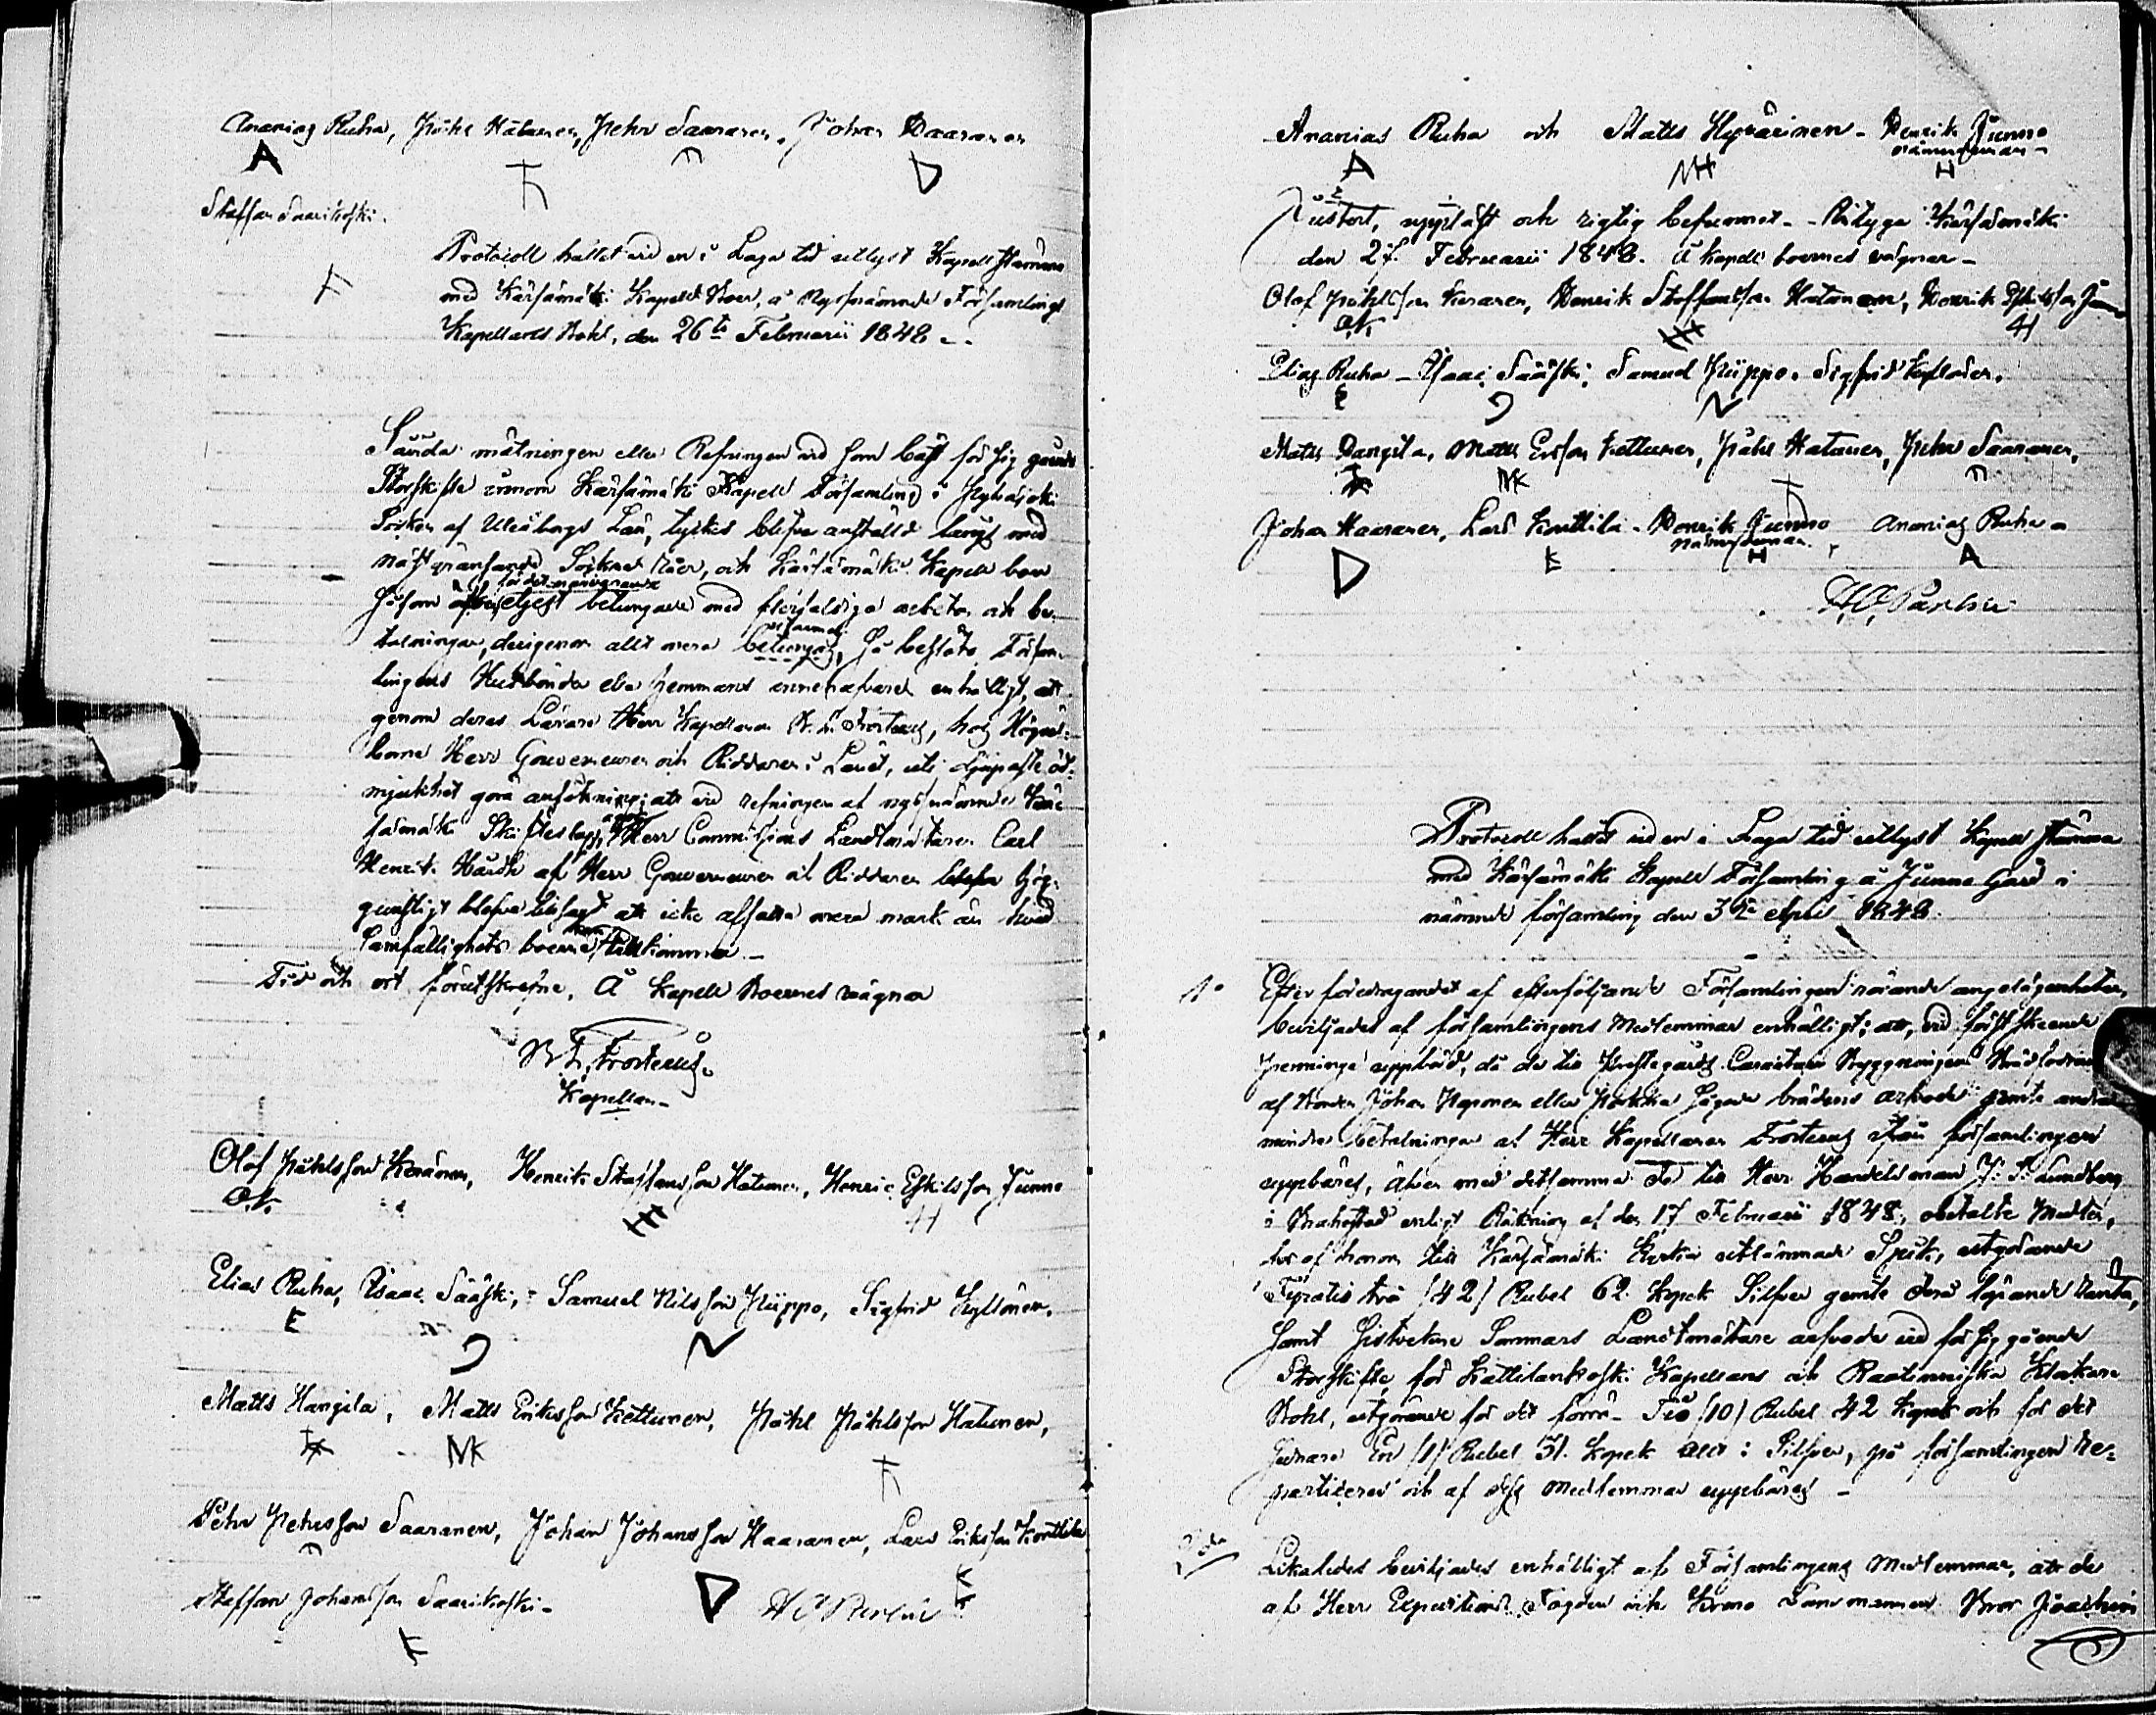 Ananias Ruha, Påhl Hatunen, Pehr Saaranen, Johan Haaranen
A
D
Staffan Saarikoski.
Protocoll hållet vid en i Laga tid utlyst Kapell stämma
med Kärsämäki Kapells Boer, å nyssnämnde Församlings
Kapellans Bohl, den 26te Februarii 1848
Såvida mätningen eller Refningen vid som bäst för sig
Storskifte innom Kärsämäki Kapell Församling i Pyhäjoki
Socken af Uleåborgs Län, tyckes blifva anställd längs med
näst gränsande Sockne Råer, och Kärsämäki Kapell boer
för det närvarande
såsom betungade med flerfaldiga arbeten och be-
talningar, derigenom allt mera betungas, så beslöto Försam-
lingens Husbönder eller hemmans innehafvare enhälligt, att
genom deras Lärare Herr Kapellanen N. L. Frosterus, hos Högväl-
borne Herr Gouverneuren och Riddaren i Länet, uti djupaste öd-
mjukhet göra ansökning; att vid refningen af nyssnämnde Kär-
sämäki Skifteslag, Herr Commissions Landtmätaren Carl
Henrik Hårdh af Herr Gouverneuren och Riddaren hög-
gunstigt blefve tillsagd att icke affatta mera mark än hvad
Samfällighets boerne tillkomma.
Tid och ort förutskrefne. Å Kapell Boernes vägnar
N. L. Frosterus.
Kapellan
Olof Påhlsson Keränen, Henrik Staffansson Hatunen, Henric Eskilsson Junno
O.K.
H
Elias Ruha, Isaac Sääski, Samuel Nilsson Piippo, Sigfrid Kyllönen.
E
N
Matts Hangila, Matts Eriksson Kettunen, Påhl Påhlsson Hatunen,
MK
Pehr Pehrsson Saaranen, Johan Johansson Haaranen, Lars Eriksson Konttila
D
E
Staffan Johansson Saarikoski
Ananias Ruha och Matts Hyvärinen - Henrik Junno
nämndeman
A MH H
Justert, uppläst och rigtig befunnet. Betyga Kärsämäki
den 27. Februarii 1848. Å kapell boernes vägnar
Olof Påhlsson Keränen, Henrik Staffansson Hatunen, Henrik Eskilsson Junno
O.K.
H
Elias Ruha - Isaac Sääski, Samuel Piippo. Sigfrid Kyllönen.
E
N
Matts Hangila, Matts Ersson Kettunen, Påhl Hatunen, Pehr Saaranen,
MK
Johan Haaranen, Lars Konttila - Henrik Junno Ananias Ruha
nämndeman
D E H A
Protocoll hållet vid en i Laga tid utlyst Kapell stämma
med Kärsämäki Kapell Församling å Junno Gård i
nämnde församling den April 1848.
1o Efter föredragandet af efterföljande Församlingen rörande angelägenheter,
beviljades af församlingens Medlemmar enhälligt; att, vid först skeende
penninge uppbörd, då de till Prestegårds Byggningens
af Bonden Johan Haponen eller sågade bräders arfvode jemte andra
mindre betalningar af Herr Kapellanen Frosterus ifrån församlingen
uppbäres, äfven med detsamma de till Herr Handelsman J. Lundberg
i Brahestad enligt Räkning af den 17 Februarii 1848, obetalte Medlen,
för af honom till Kärsämäki Kyrka utlämnade Spik, utgörande
Fyratio två (42) Rubel 62. Kopek Silfver jemte derå löpande Ränta,
samt Sistvekne Sommars Landtmätare arfvode vid försiggående
Storskifte för Kattilankoski Kapellans och Raatinniska Klockare
Bohl, utgörande för det förra Tio (10) Rubel 42 Kopek och för det
sednare En (1) Rubel 51. Kopek allt i Silfver, på församlingen re-
parteras och af dess Medlemmar uppbäres
2do Likaledes beviljades enhälligt af Församlingens Medlemmar, att de
af Herr Expeditions Fogden och Krono Länsmannen Bror Joachim